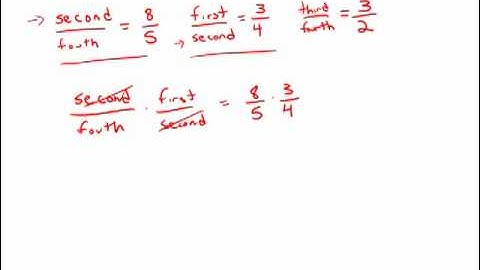 → second/fouth = 8/5 → first/second = 3/4 third/fourth = 3/2
second/fouth · first/second = 8/5 · 3/4